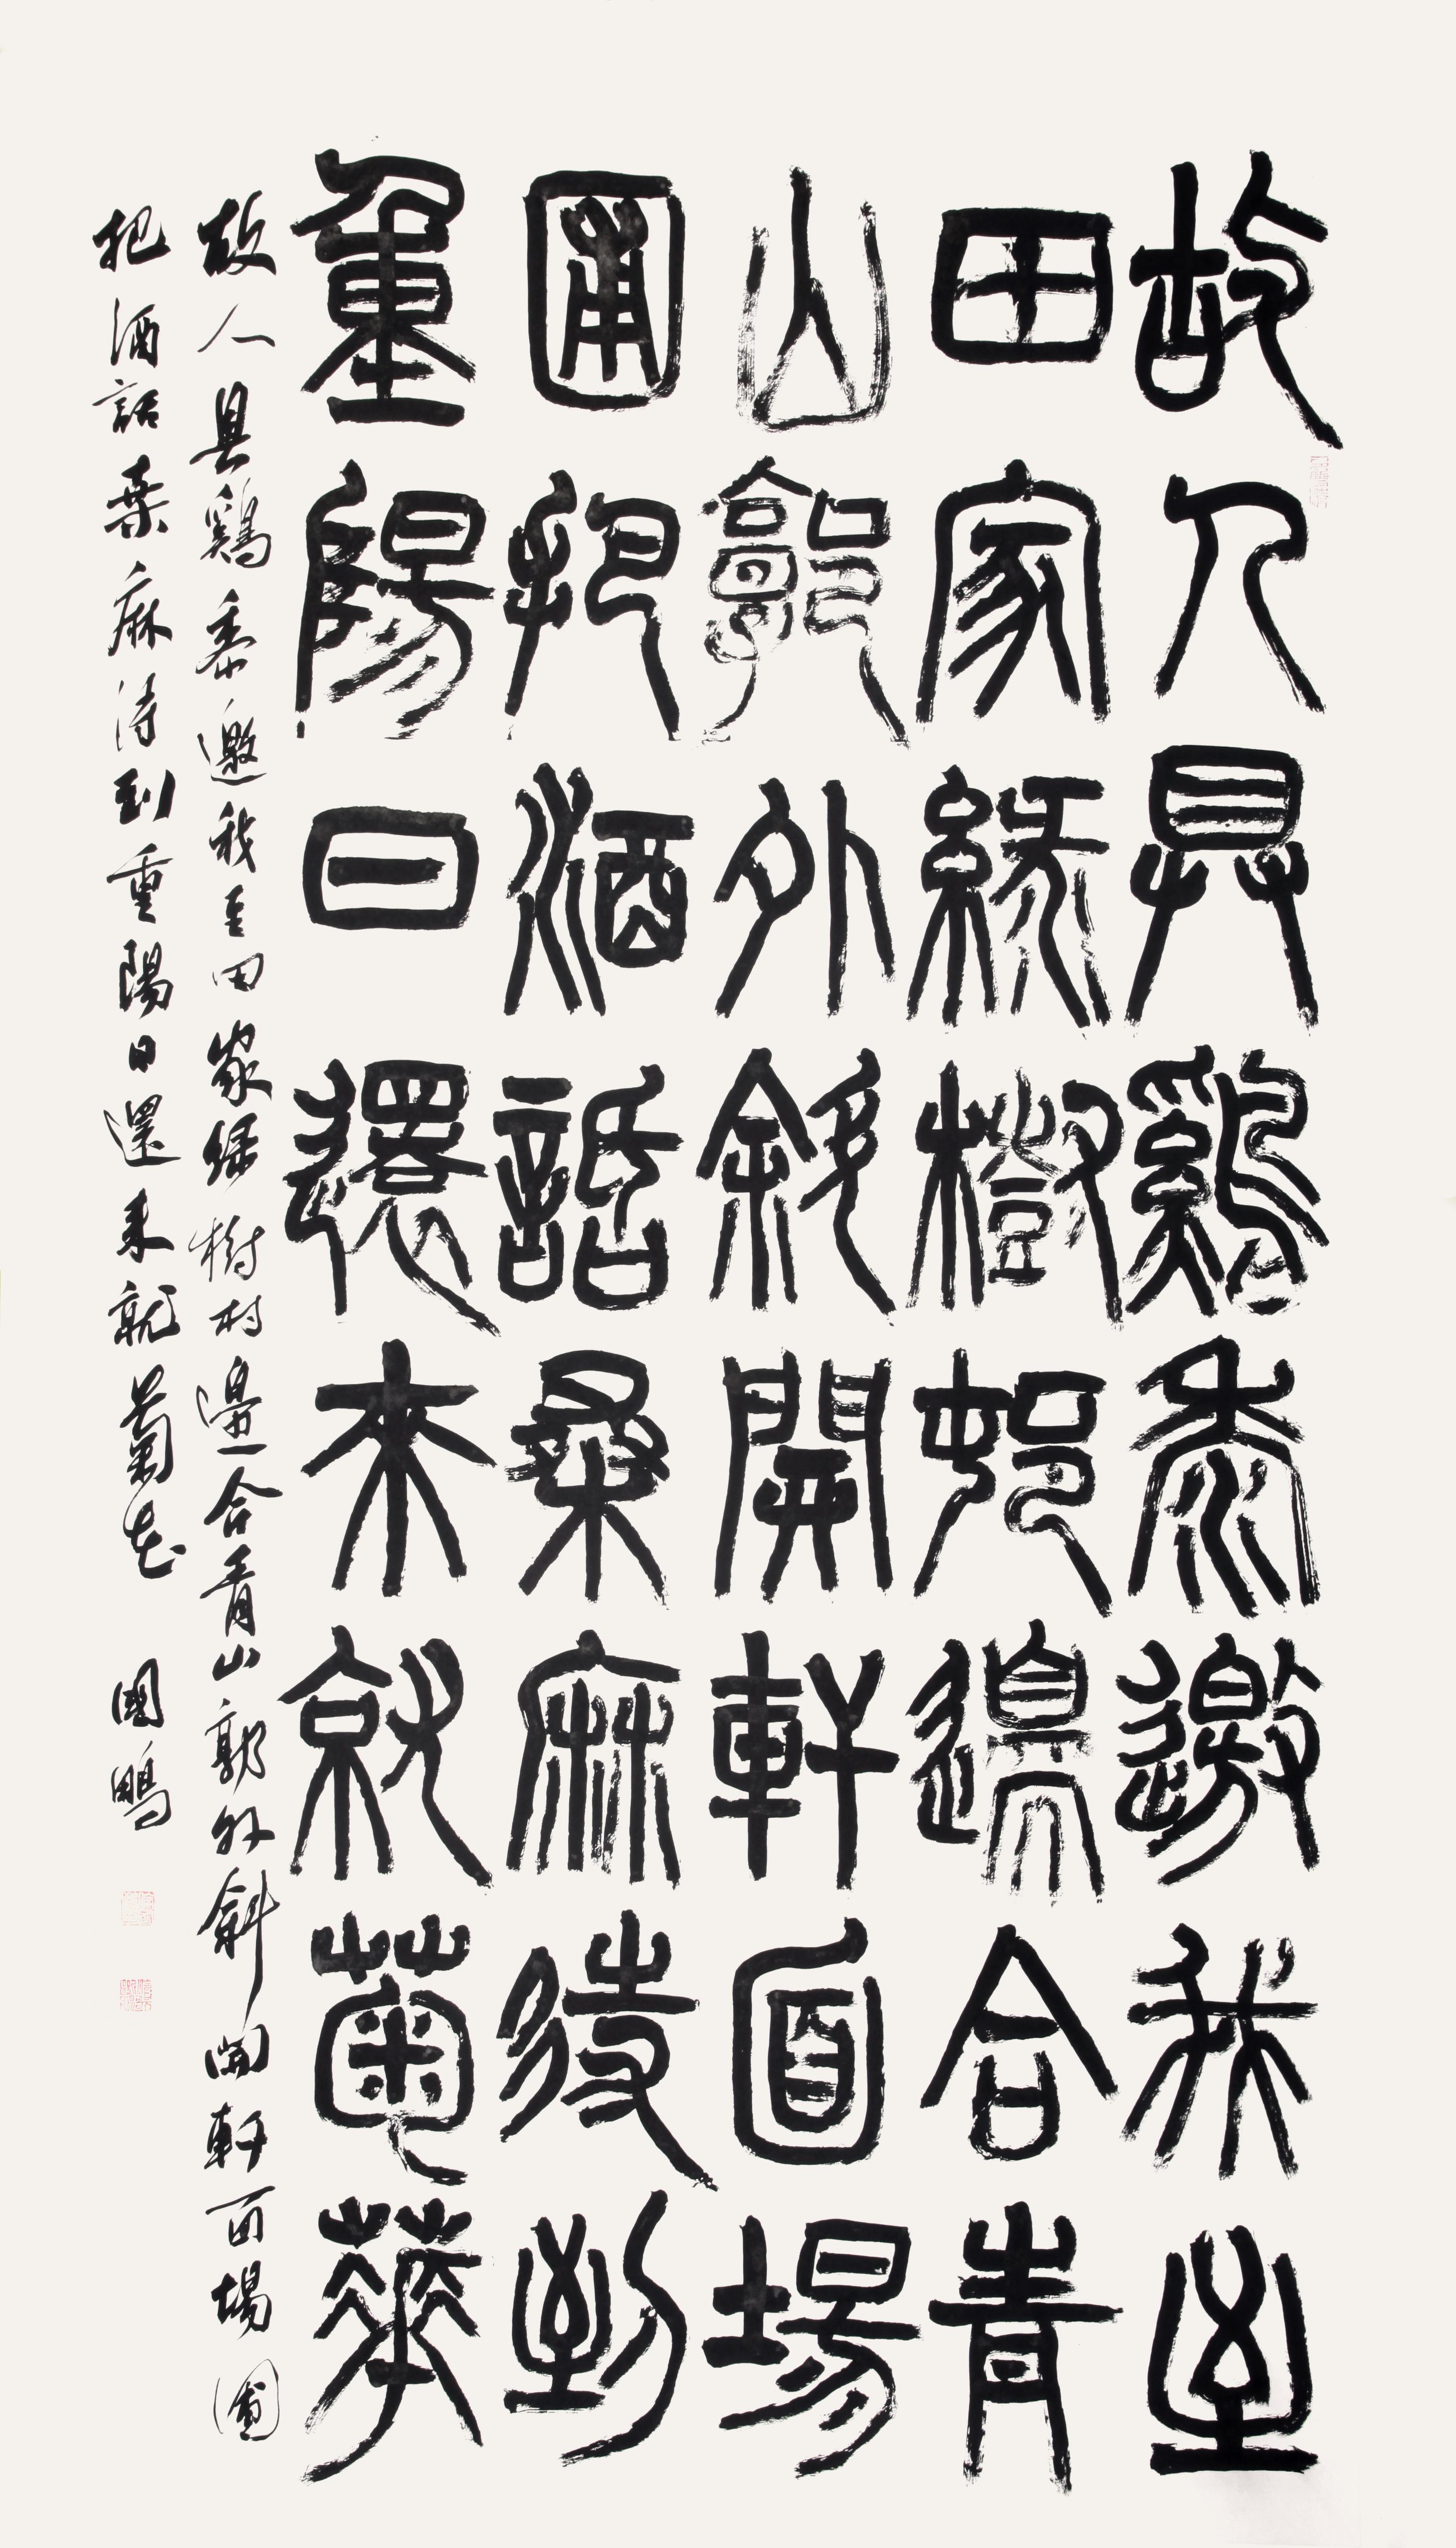 故人具鷄黍邀我至
田家緑樹邨邊合青
山郭外斜開軒面場
圃把酒話桑麻待到
重陽日還來就菊華
故人具鷄黍邀我至田家緑樹村邊合青山郭外斜開軒面場圃
把酒話桑麻待到重陽日還來就菊花 國鵬